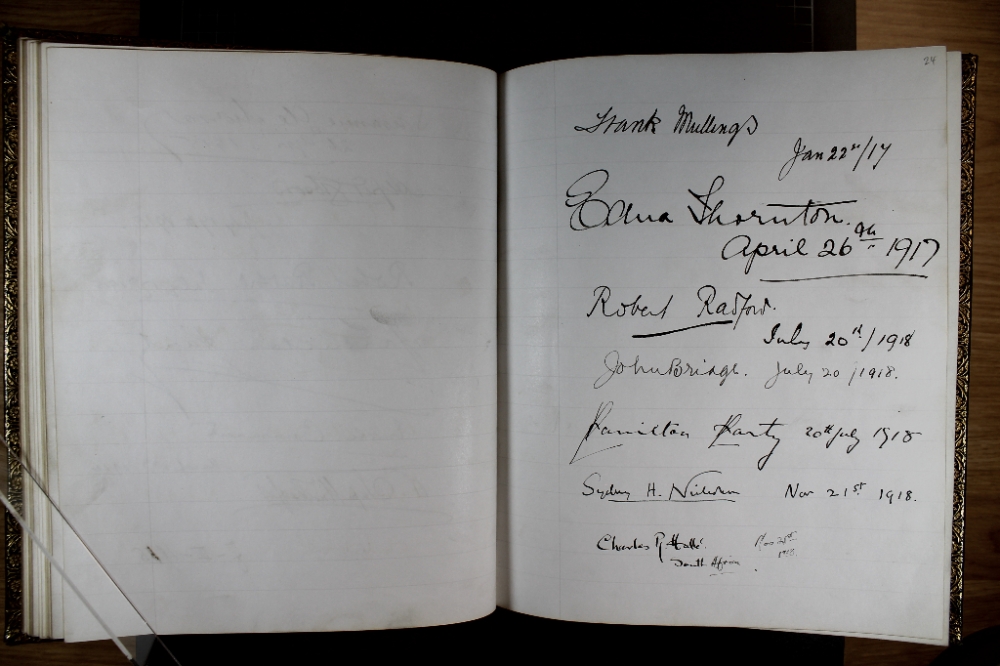 24
Frank Mullings
Jan 22nd/17
Edna Thornton.
April 26th 1917
Robert Radford.
July 20th/1918
John Bridge. July 20/1918.
Hamilton Harty 20th July 1918
Sydney H. Nicholson Nov 21st 1918.
Charles R Hallé. Nov
South Africa 1918.